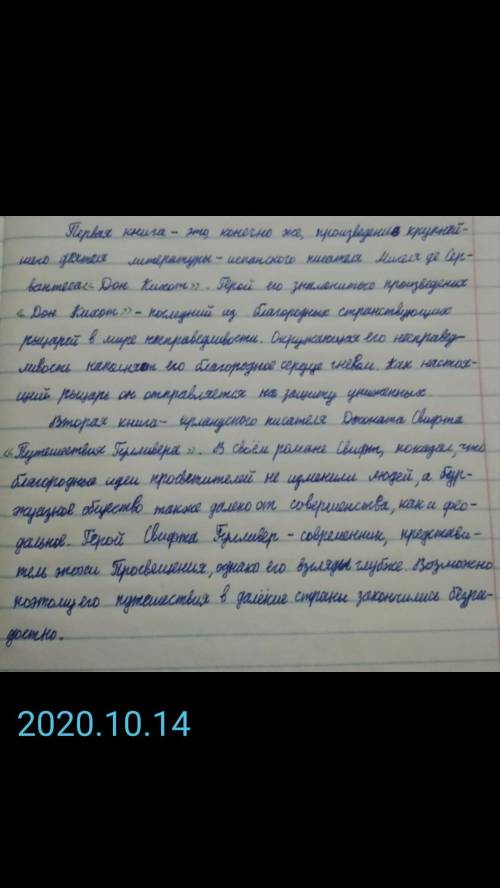 Первая книга - это, конечно же, произведение крупней-
шего деятеля литературы - испанского писателя Мигеля де Сер-
вантеса «Дон Кихот». Герой его знаменитого произведения
«Дон Кихот» - последний из благородных странствующих
рыцарей в мире несправедливости. Окружающая его несправед-
ливость наполняет его благородное сердце гневом. Как настоя-
щий рыцарь он отправляется на защиту униженных
Вторая книга - ирландского писателя Джоната Свифта
«Путешествия Гулливера». В своём романе Свифт, показал, что
благородные идеи просветителей не изменили людей, а бур-
жуазное общество также далеко от совершенства, как и фео-
дальное. Герой Свифта Гулливер - современник, представи-
тель эпохи Просвещения, однако его взгляды глубже. Возможно
поэтому его путешествия в далёкие страны закончились безра-
достно.
2020.10.14